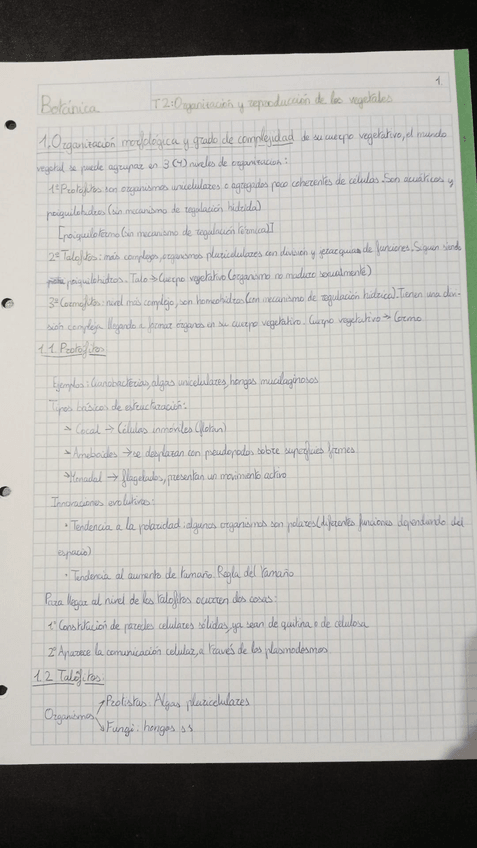 1.
Botánica
T2: Organización y reproducción de los vegetales
1. Organización morfológica y grado de complejidad de su cuerpo vegetativo, el mundo
vegetal se puede agrupar en 3 (4) niveles de organización:
1º Protófitos: son organismos unicelulares o agregados poco coherentes de células. Son acuáticos y
poiquilohidros (sin mecanismo de regulación hídrica)
[poiquilotermo (sin mecanismo de regulación térmica)]
2º Talófitos: más complejos, organismos pluricelulares con división y jerarquías de funciones. Siguen siendo
poiquilohidros. Talo → Cuerpo vegetativo (organismo no maduro sexualmente)
3º Cormófitos: nivel más complejo, son homeohidros (con mecanismo de regulación hídrica). Tienen una divi-
sión compleja llegando a formar órganos en su cuerpo vegetativo. Cuerpo vegetativo → Cormo
1.1. Protófitos
Ejemplos: Cianobacterias, algas unicelulares, hongos mucilaginosos
Tipos básicos de estructuración:
→ Cocal → Células inmóviles (flotan)
→ Ameboides → se desplazan con pseudopodos sobre superficies firmes
→ Monadal → flagelados, presentan un movimiento activo
Innovaciones evolutivas:
• Tendencia a la polaridad: algunos organismos son polares (diferentes funciones dependiendo del
espacio)
• Tendencia al aumento de tamaño. Regla del tamaño
Para llegar al nivel de los talófitos ocurren dos cosas:
1º Constitución de paredes celulares sólidas, ya sean de quitina o de celulosa
2º Aparece la comunicación celular, a través de los plasmodesmos
1.2 Talófitos:
Organismos
Protistas: Algas pluricelulares
Fungi: hongos s.s